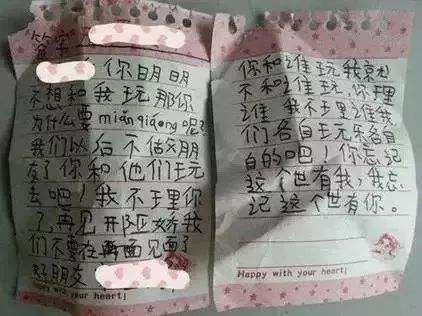 你明明
不想和我玩那你
为什么要 miǎn qiǎng 呢?
我们以后不做朋
友了你和他们玩
去吧!我不理你
了,再见 娇我
们不要在 面见面了
好朋友
Happy with your heart;
你和谁玩我就
不和谁玩,你理
谁我不理谁我
们各自玩乐各自
的吧!你忘记
这个世有我,我忘
记这个世有你。
Happy with your heart;